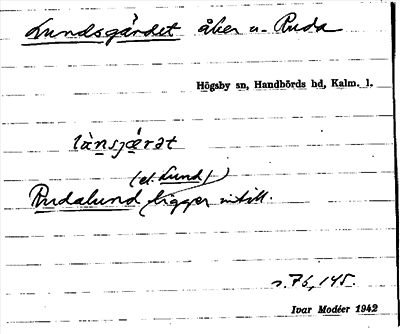 Lundsgärdet åker u. Ruda
Högsby sn, Handbörds hd, Kalm. l.
länsjæ̀rət
(el. Lund)
Rudalund ligger intill.
s. 76, 145.
Ivar Modéer 1942